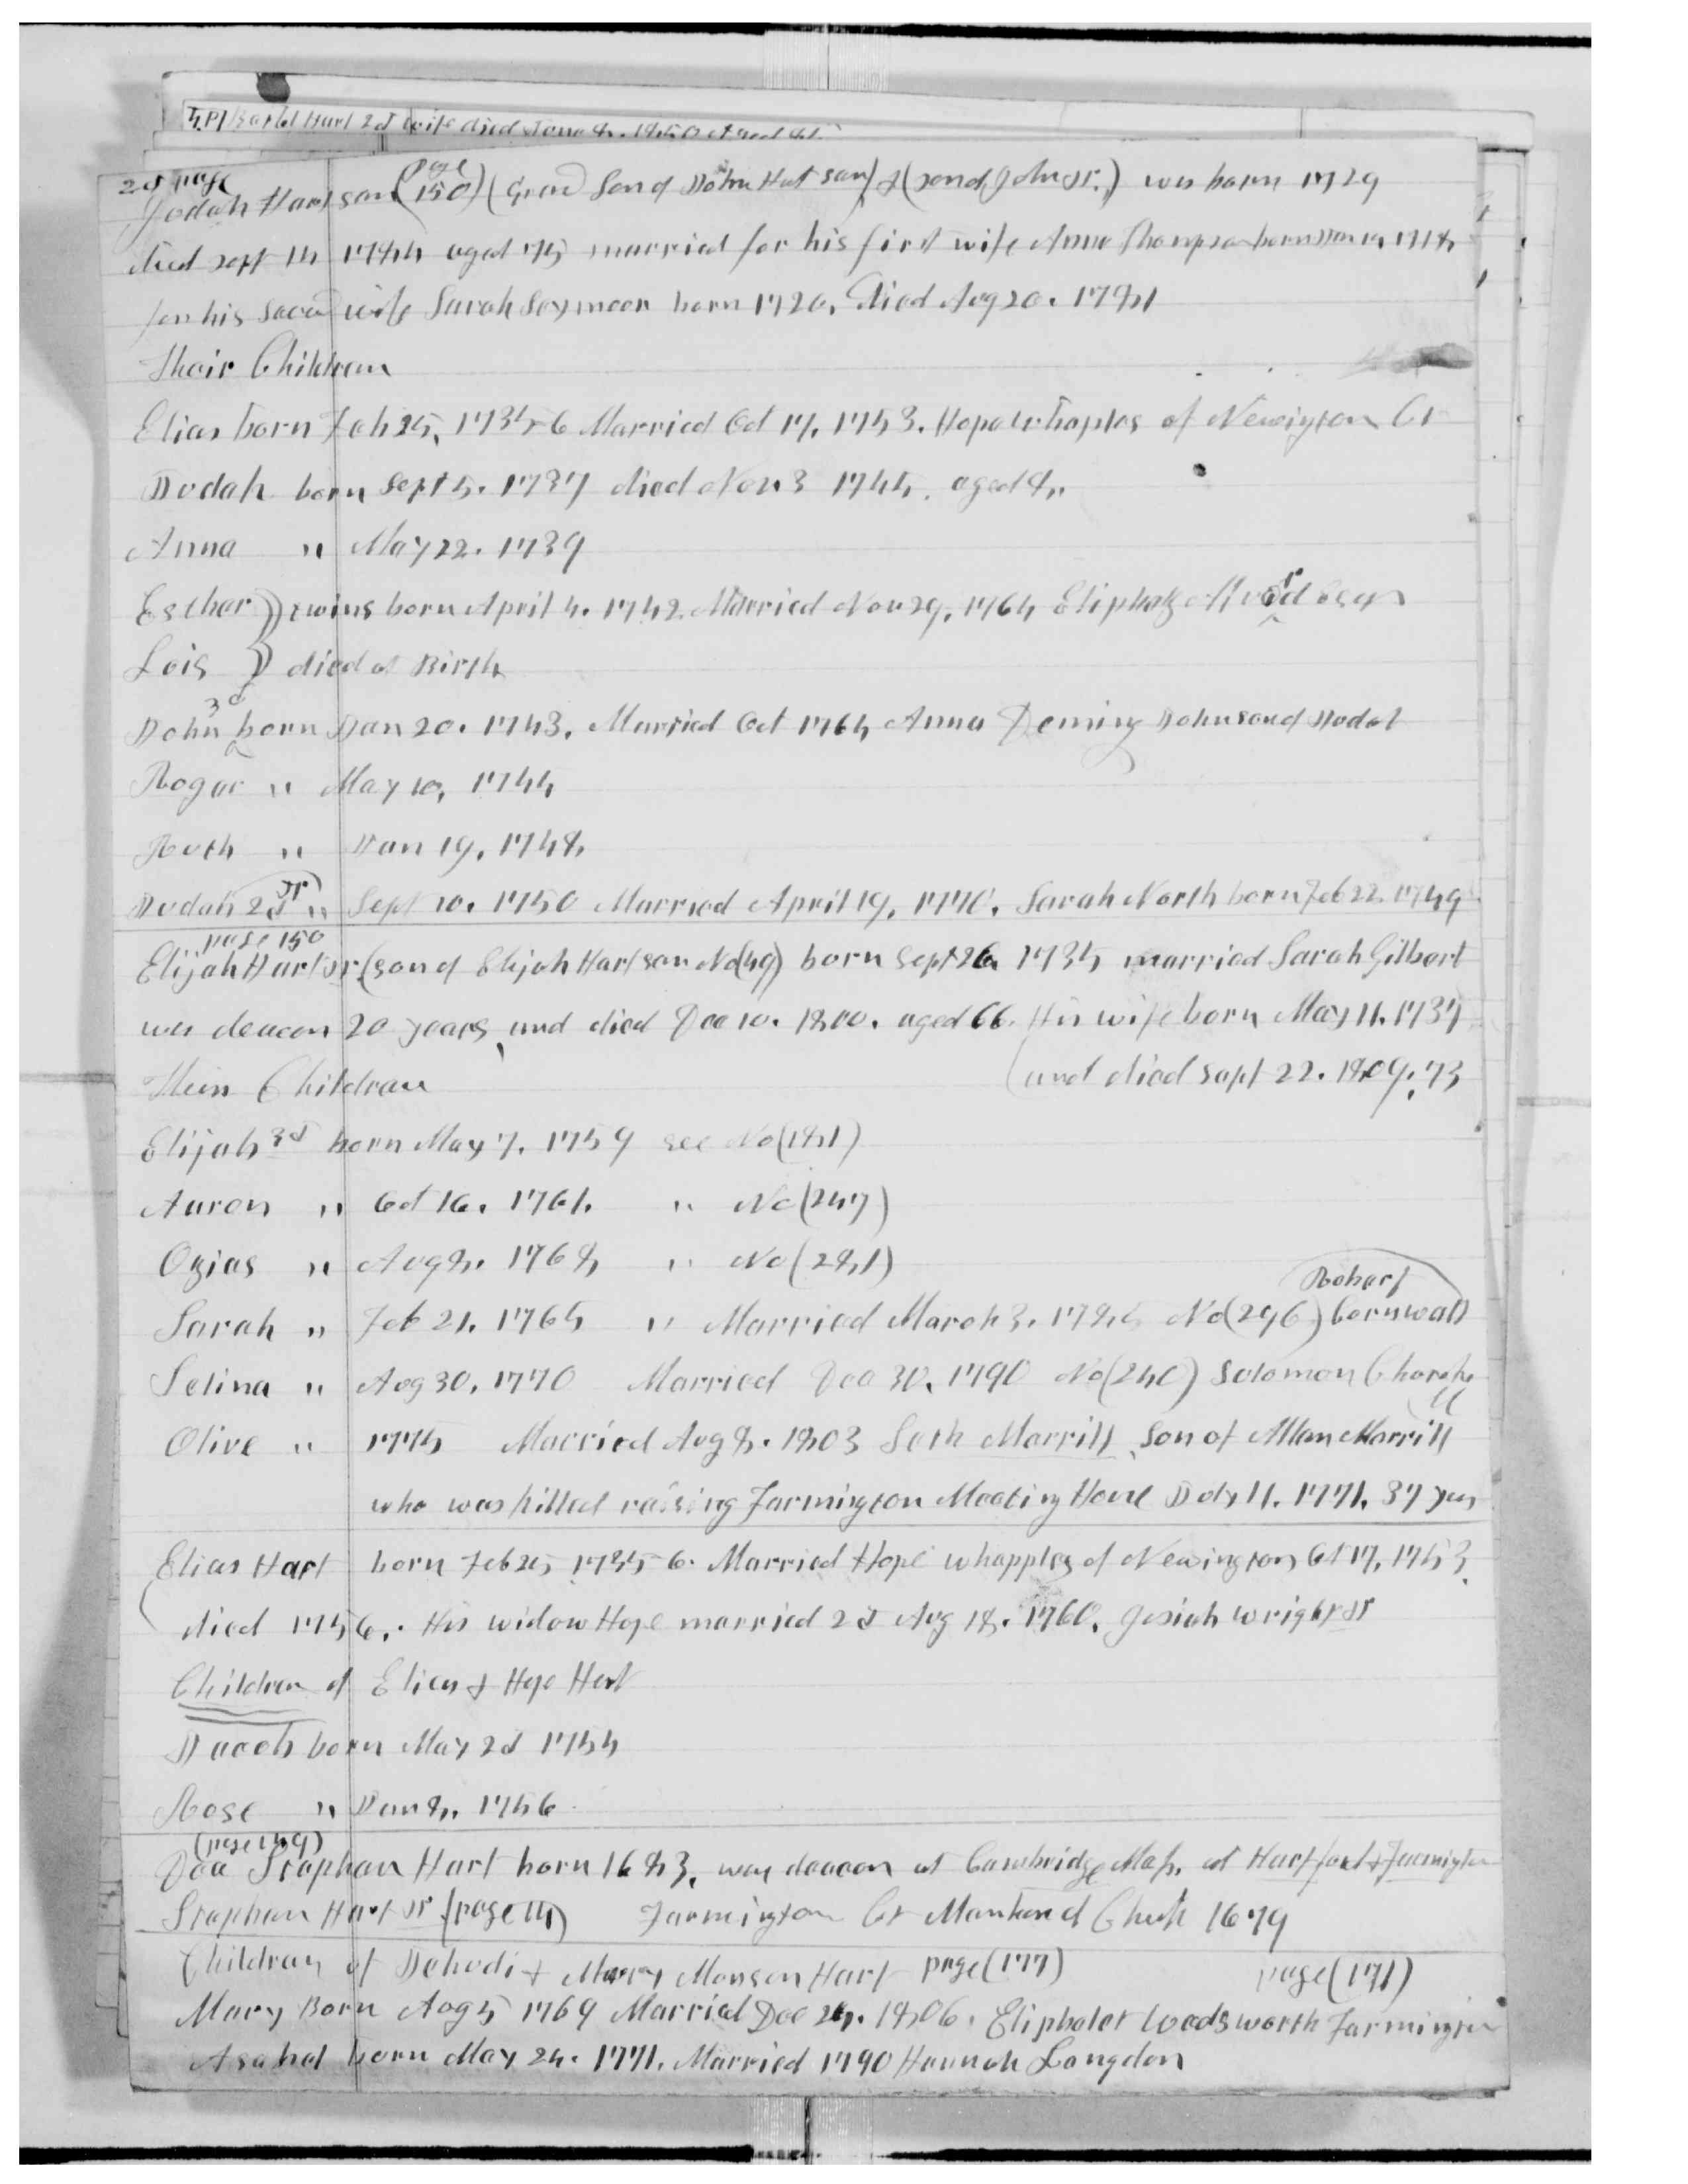 Bartol Hart 2d wife died June 8. 1850 aged 45
2d page
Judah Hart son (page 150) (Grand Son of John Hart son) & (son of John Jr.) was born 1729
died sept 14 1784 aged 75 married for his first wife Anna Thompson born 1718
for his second wife Sarah Seymoor born 1720. Died Aug 20. 1781
Their Children
Elias born Feb 25, 1735-6 Married Oct 17, 1753. Hope Whaples of Newington Ct
Judah born Sept 5. 1737 died Nov 3 1745. aged 8.
Anna " May 22. 1739
Esther } twins born April 4. 1742 Married Nov 29, 1764 Eliphaz Alvord Esqr
Lois } died at Birth
John 3d born Jan 20. 1743. Married Oct 1764 Anna Deming John son of Judah
Roger " May 10, 1744
Ruth " Jan 19, 1748
Judah 2d Jr " Sept 10. 1750 Married April 19, 1770. Sarah North born Feb 22. 1749
page 150
Elijah Hart Jr. (son of Elijah Hart son No (49)) born Sept 26 1735 married Sarah Gilbert
was deacon 20 years, and died Dec 10. 1800. aged 66. His wife born May 11. 1737
(and died Sept 22. 1809. 73
Their Children
Elijah 3d born May 7. 1759 see No (181)
Aaron " Oct 16. 1761. " No (247)
Ozias " Aug 8. 1768 " No (281)
Sarah " Feb 21. 1765 " Married March 3. 1785 No (296) Robert Cornwall
Selina " Aug 30. 1770 Married Dec 30. 1790 No (240) Solomon Churchill
Olive " 1775 Married Aug 8. 1803 Seth Merrill, Son of Allen Merrill
who was killed raising Farmington Meeting House July 11. 1771. 37 yrs
Elias Hart born Feb 25 1735-6. Married Hope Whapples of Newington Oct 17, 1753.
died 1756. His widow Hope married 2d Aug 18. 1760. Josiah Wright Jr
Children of Elias & Hope Hart
Jacob born May 2d 1754
Rose " Jan 8. 1756
(page 149)
Dea Stephen Hart born 1683, was deacon at Cambridge Mass. at Hartford & Farmington
Stephen Hart Jr (page 14) Farmington Ct Church 1679
Children of Jehudi & Mary Monson Hart page (177) page (171)
Mary Born Aug 5 1769 Married Dec 24. 1806. Eliphalet Woodsworth Farmington
Asahel born May 24. 1771. Married 1790 Hannah Langdon